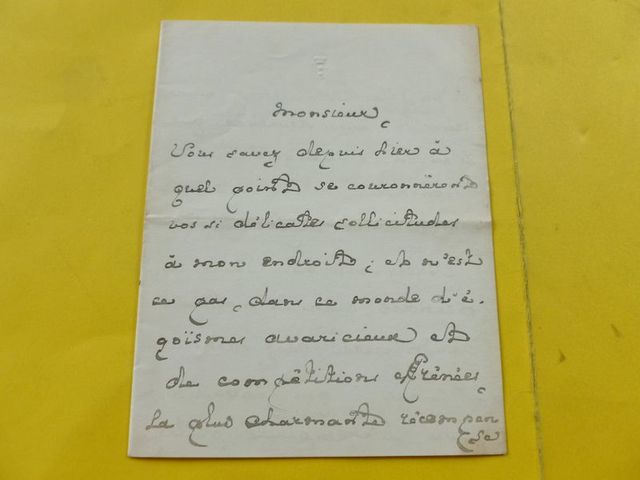 Monsieur,
Vous savez depuis hier à
quel point se couronnèrent
vos si délicates sollicitudes
à mon endroit ; et n'est
ce pas, dans ce monde d'é-
goïsmes avaricieux et
de compétitions effrénées,
la plus charmante récompen
se